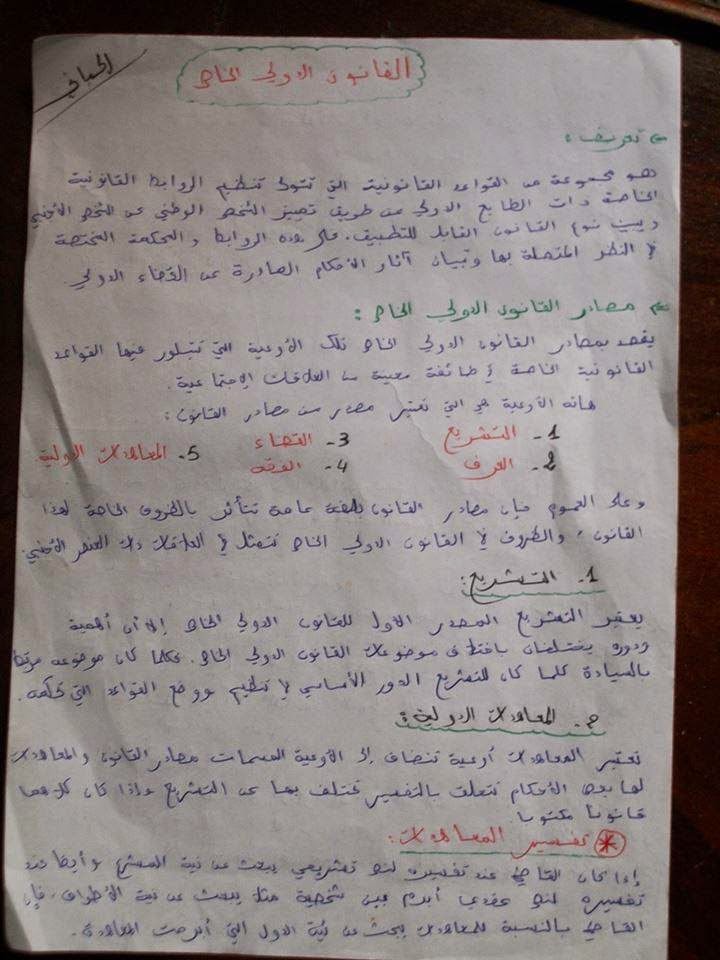 الحباني
القانون الدولي الخاص
تعريف:
هو مجموعة من القواعد القانونية التي تتولى تنظيم الروابط القانونية
الخاصة ذات الطابع الدولي عن طريق تمييز الشخص الوطني عن الشخص الأجنبي
ويبين نوع القانون القابل للتطبيق. على هذه الروابط والمحكمة المختصة
في النظر المتصلة بها وتبيان آثار الأحكام الصادرة عن القضاء الدولي
مصادر القانون الدولي الخاص:
يقصد بمصادر القانون الدولي الخاص تلك الأوعية التي تتبلور فيها القواعد
القانونية الخاصة في طائفة معينة من العلاقات الاجتماعية.
هاته الأوعية هي التي تعتبر مصادر من مصادر القانون:
1- التشريع 3- القضاء 5- المعاهدات الدولية.
2- العرف 4- الفقه
وعلى العموم فإن مصادر القانون بصفة عامة تتأثر بالظروف الخاصة لهذا
القانون، والظروف في القانون الدولي الخاص تتمثل في العلاقات ذات العنصر الأجنبي.
1- التشريع:
يعتبر التشريع المصدر الأول للقانون الدولي الخاص إلا أن أهمية
ودوره يختلفان باختلاف موضوعات القانون الدولي الخاص. فكلما كان موضوعه مرتبط
بالسيادة كلما كان للتشريع الدور الأساسي في تنظيم ووضع القواعد التي تحكمه.
2- المعاهدات الدولية:
تعتبر المعاهدات أوعية تنضاف إلى الأوعية المسمات مصادر القانون والمعاهدات
لها بعض الأحكام تتعلق بالتفسير تختلف بها عن التشريع وإذا كان كلاهما
قانونا مكتوبا
* تفسير المعاهدات:
إذا كان القاضي عند تفسيره لنص تشريعي يبحث عن نية المشرع وأيضا عند
تفسيره لنص عقدي أبرم بين شخصية مثلا يبحث عن نية الأطراف، فإن
القاضي بالنسبة للمعاهدات يبحث عن نية الدول التي أبرمت المعاهدة.